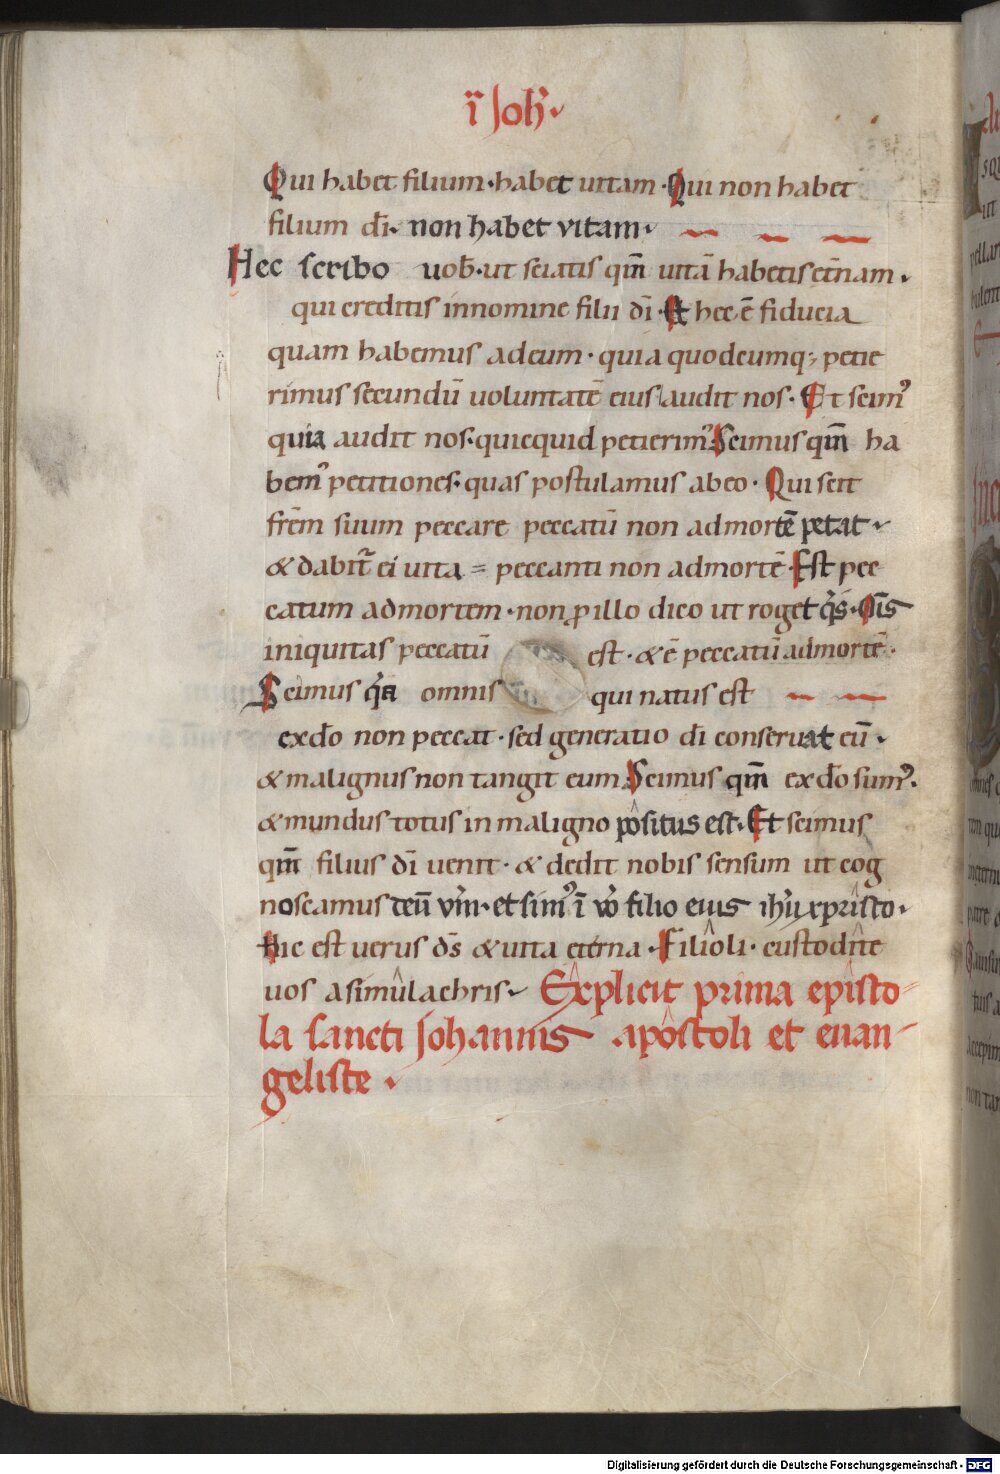 ī Joh̅
Qui habet filium · habet uitam · Qui non habet
filium dī · non habet vitam ·
Hec scribo uob̅ · ut sciatis qm̅ uitā habetis et̅nam ·
qui creditis innomine filii dī · Et hec · ē fiducia
quam habemus adeum · quia quodcumq; petie
rimus secundū uoluntatē eius audit nos · Et scimꝰ
quia audit nos · quicquid petierimꝰ Scimus qm̅ ha
bemꝰ petitiones · quas postulamus abeo · Qui scit
frēm suum peccare peccatū non admortē petat ·
& dabit̅ ei uita = peccanti non admortē · Est pec
catum admortem · non ꝓ illo dico ut roget q̇s · Om̅is
iniquitas peccatū est · & ē peccatū admortē ·
Scimus q̇a omnis qui natus est
exdō non peccat · sed generatio dī conseruat eū ·
& malignus non tangit eum Scimus qm̅ exdō sumꝰ ·
& mundus totus in maligno positus est · Et scimus
qm̅ filius dī uenit · & dedit nobis sensum ut cog
noscamus deū vm̅ · et simꝰ ī vō filio eius ih'u xpristo ·
hic est uerus ds̅ & uita eterna · Filioli · custodite
uos asimulachris · Explicit prima episto=
la sancti Johannis apostoli et euan-
geliste ·
Digitalisierung gefördert durch die Deutsche Forschungsgemeinschaft - DFG